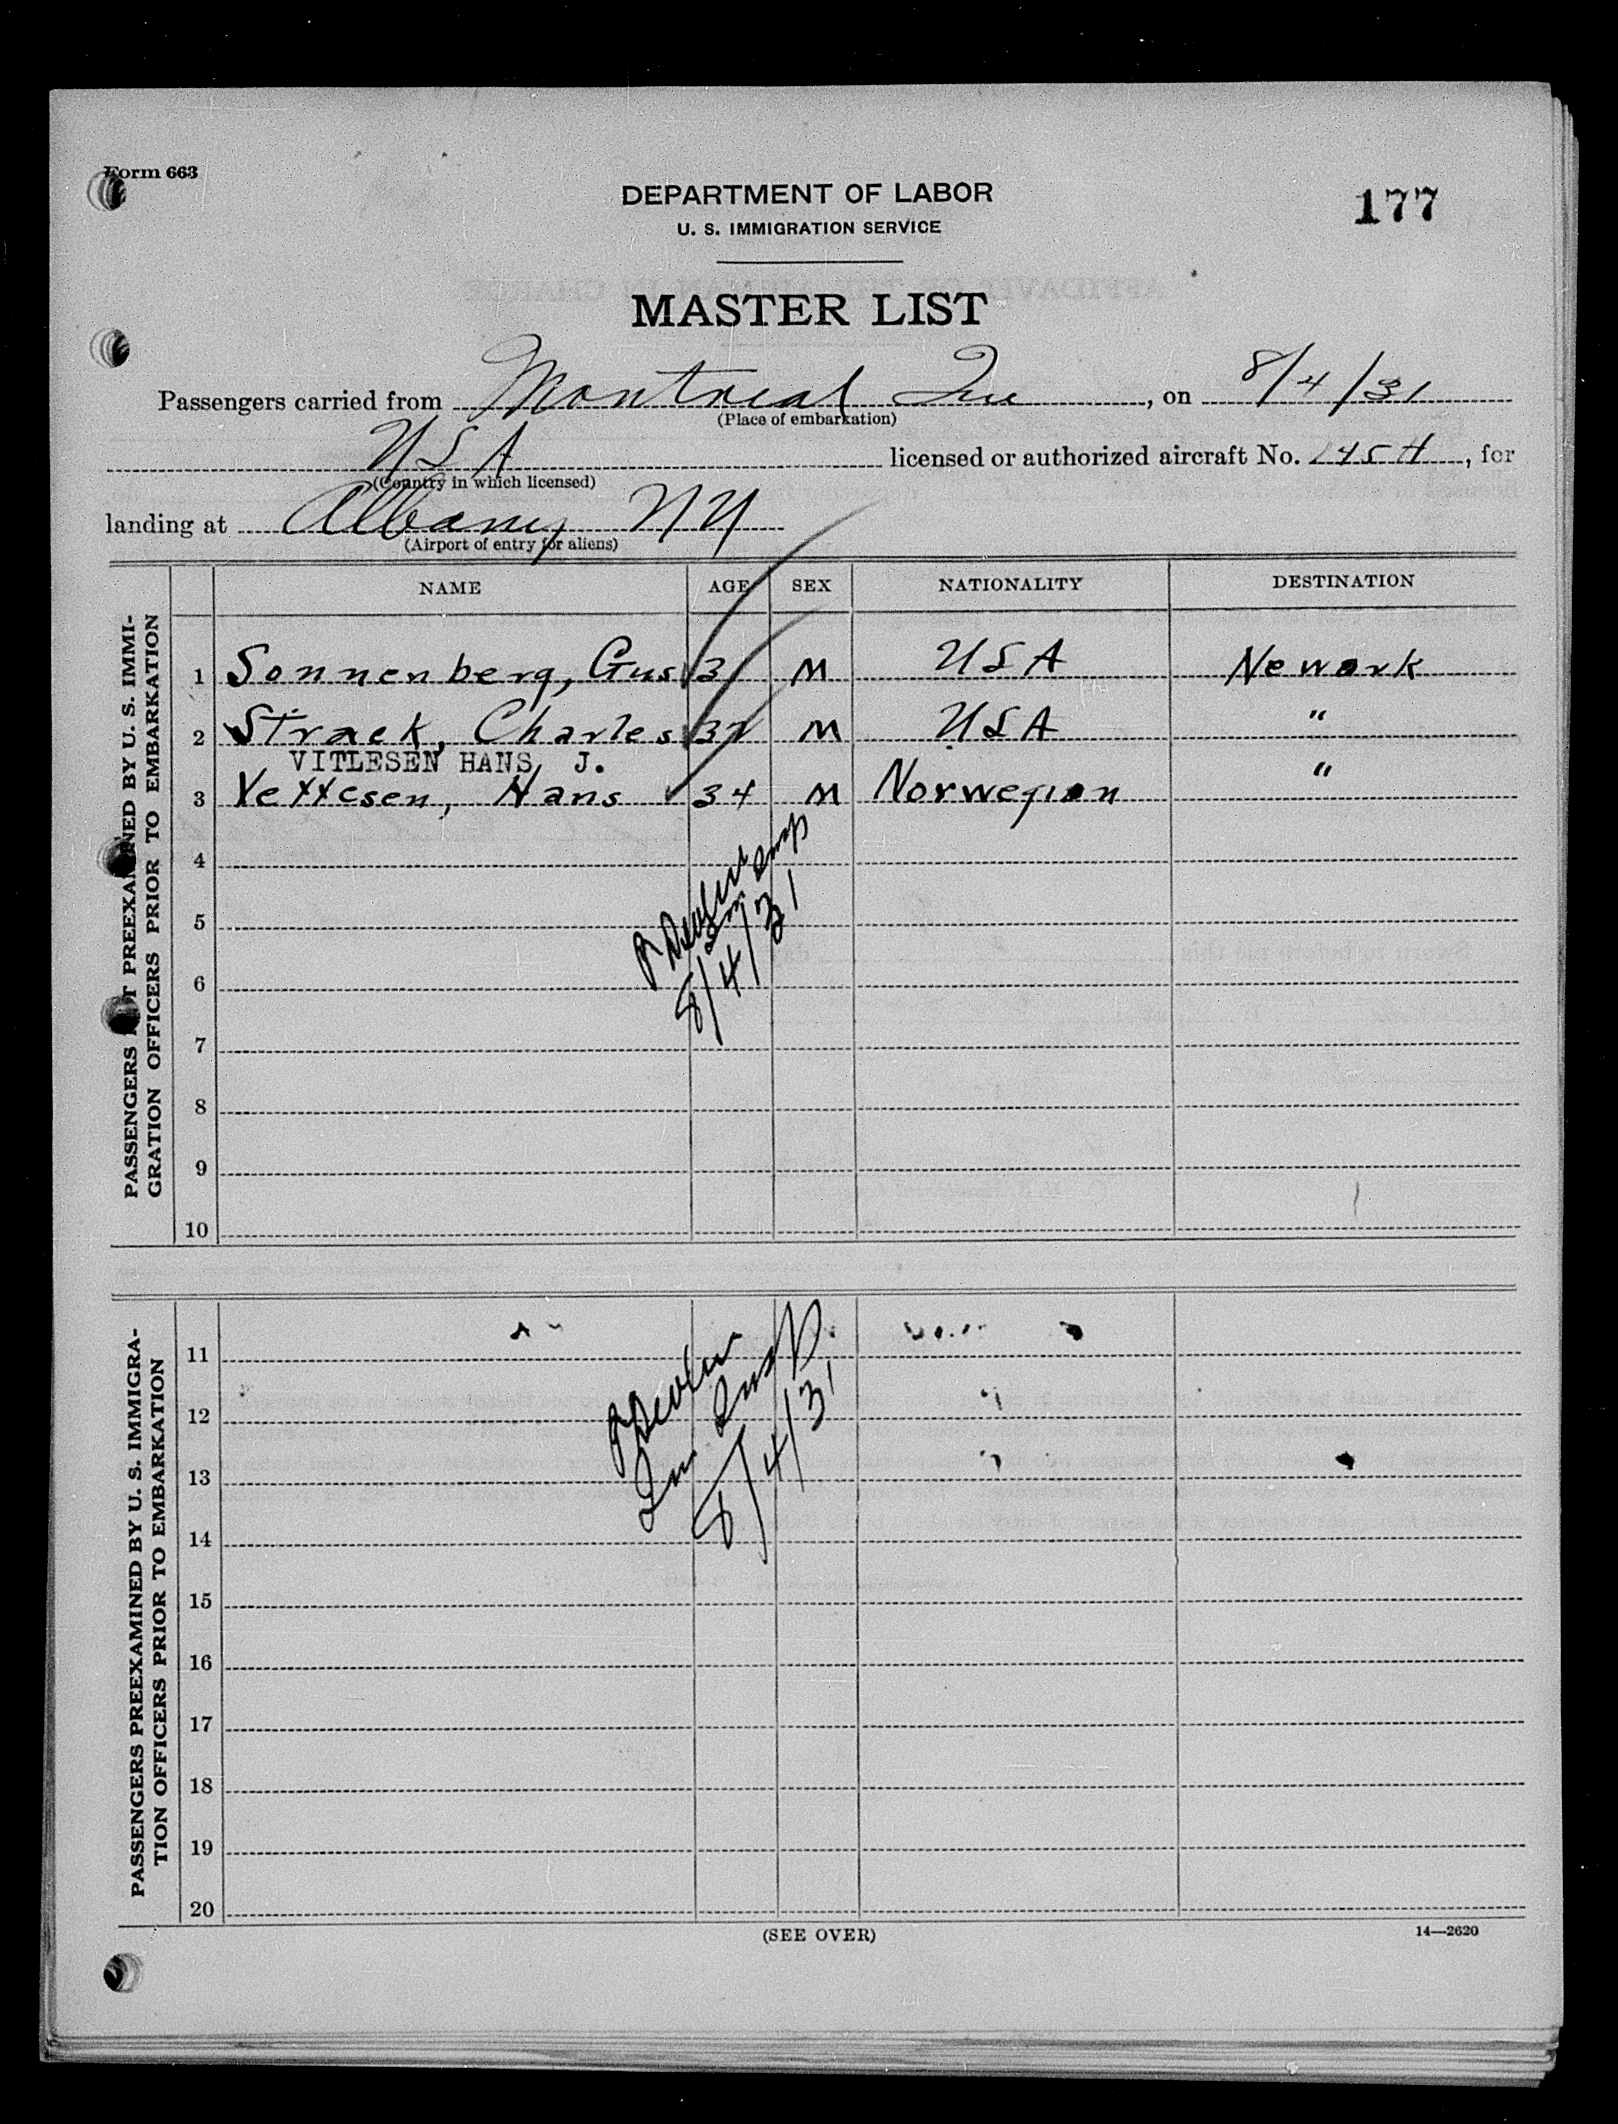 Form 663
DEPARTMENT OF LABOR
U. S. IMMIGRATION SERVICE
177
MASTER LIST
Passengers carried from Montreal Que, on 8/4/31
(Place of embarkation)
USA licensed or authorized aircraft No. 145H, for
(Country in which licensed)
landing at Albany NY
(Airport of entry for aliens)
PASSENGERS NOT PREEXAMINED BY U. S. IMMI-
GRATION OFFICERS PRIOR TO EMBARKATION
NAME AGE SEX NATIONALITY DESTINATION
1 Sonnenberg, Gus 31 M USA Newark
2 Strack, Charles 32 M USA "
VITLESEN HANS J.
3 Vettesen, Hans 34 M Norwegian "
4
5
6
7
8
9
10
Devlin
8/4/31
PASSENGERS PREEXAMINED BY U. S. IMMIGRA-
TION OFFICERS PRIOR TO EMBARKATION
11
12
13
14
15
16
17
18
19
20
Devlin
Im Insp
8/4/31
(SEE OVER)
14—2620